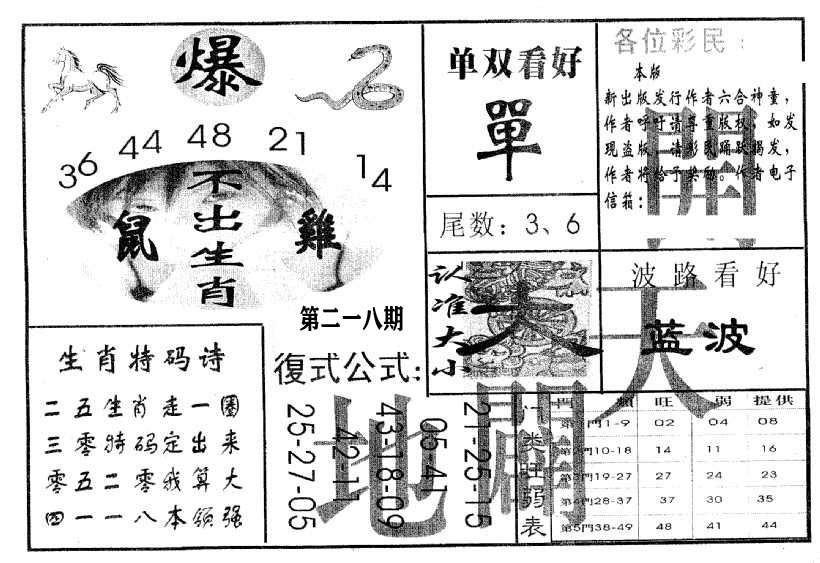 爆
36 44 48 21 14
不出生肖
鼠 雞
第二一八期
生肖特码诗
二五生肖走一圈
三零特码定出来
零五二零我算大
四一一八本领强
復式公式:
21-25-15
05-41
43-18-09
42-11
25-27-05
单双看好
單
尾数: 3、6
认准大小
大
各位彩民:
本版
新出版发行作者六合神童,
作者呼吁请尊重版权, 如发
现盗版, 请彩民踊跃揭发,
作者将给予奖励。作者电子
信箱:
波路看好
蓝波
開天闢地
门类旺弱表
門類 旺 弱 提供
第1門1-9 02 04 08
第2門10-18 14 11 16
第3門19-27 27 24 23
第4門28-37 37 30 35
第5門38-49 48 41 44